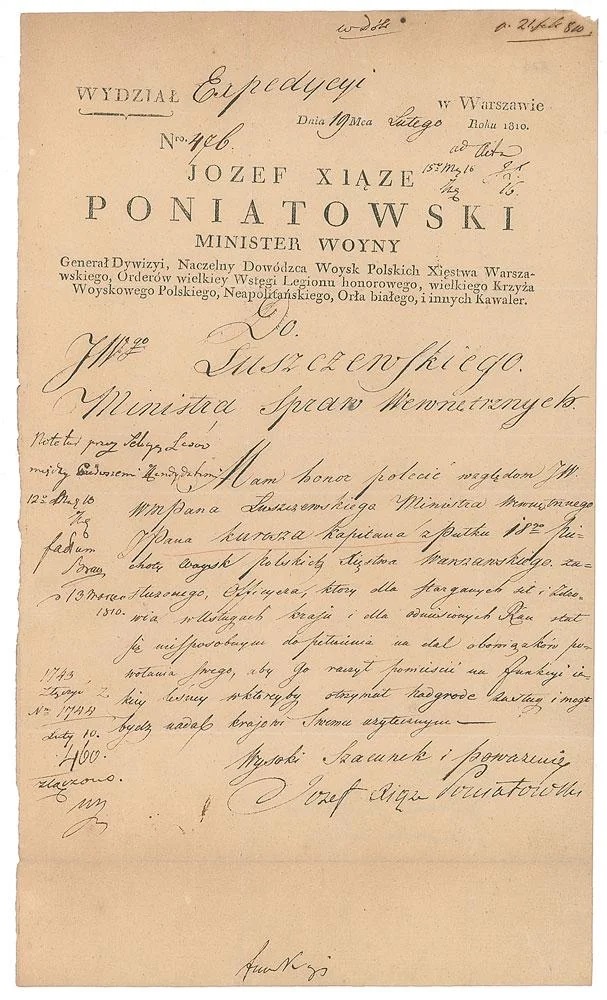 w dół
p. 21 feb 810.
WYDZIAŁ Expedycyi
w Warszawie
Dnia 19 Mca Lutego Roku 1810.
Nro. 496.
ad Acta
15
16.
JOZEF XIĄZE
PONIATOWSKI
MINISTER WOYNY
Generał Dywizyi, Naczelny Dowódzca Woysk Polskich Xięstwa Warsza-
wskiego, Orderów wielkiey Wstęgi Legionu honorowego, wielkiego Krzyża
Woyskowego Polskiego, Neapolitańskiego, Orła białego, i innych Kawaler.
Do.
JWgo Łuszczewskiego.
Ministra Spraw Wewnętrznych.
Mam honor polecić względom JW.
WMPana Łuszczewskiego Ministra Wewnętrznego
JPana Kurasza Kapitana z Pułku 18go Pie-
choty woysk polskich Xięstwa Warszawskiego. za-
służonego, Officyera, który dla starganych sił i Zdro-
wia w usługach kraju i dla odniesionych Ran stał
się niesposobnym do pełnienia na dal obowiązków po-
wołania swego, aby Go raczył pomieścić na funkcyi ia-
kiey leśney w którey by otrzymał nadgrodę zasług i mógł
bydź nadal krajowi Swemu użytecznym —
Wysoki Szacunek i poważenie
Jozef Xiąże Poniatowski
Notetur przy
między Kandydatami
12
factum
d 13 Marca
1810.
1743
złączyć z
Nro 1744
Luty 10.
460.
złączono.